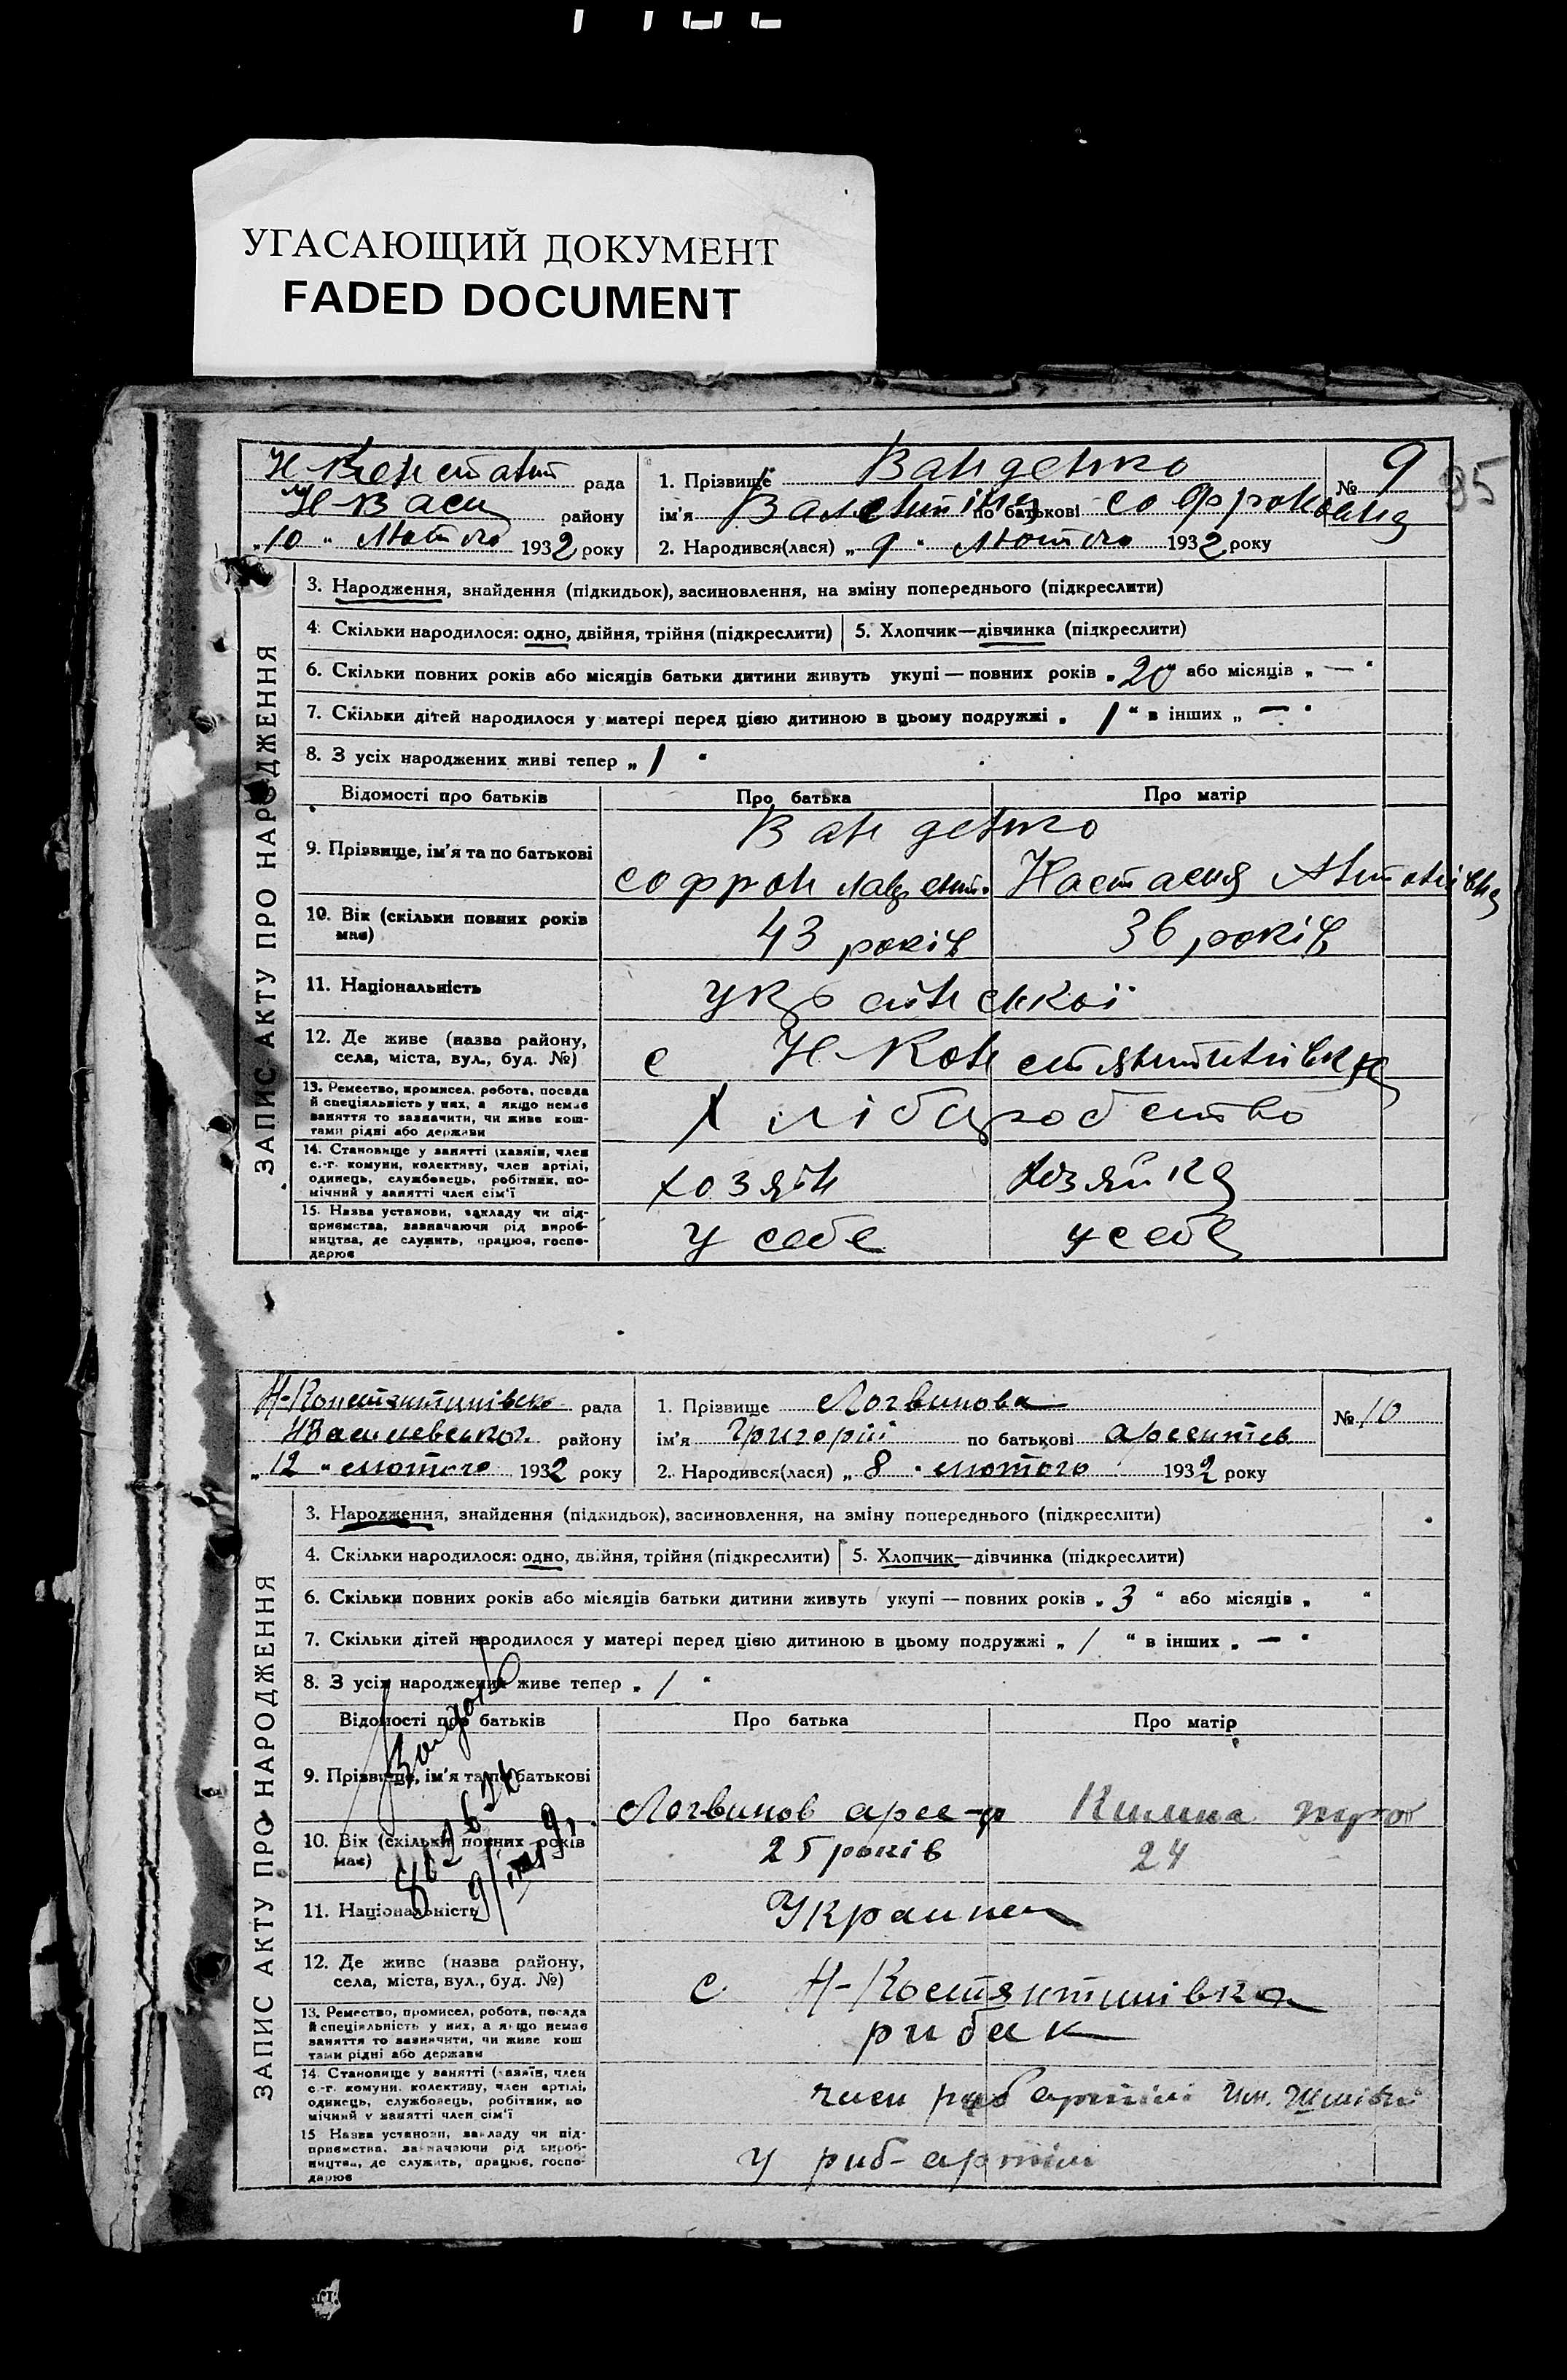 УГАСАЮЩИЙ ДОКУМЕНТ
FADED DOCUMENT
95
ЗАПИС АКТУ ПРО НАРОДЖЕННЯ
рада
Н Васи району
„10“ Лютого 1932 року
1. Прізвище Ванденко № 9
ім'я Валентіна по батькові Софроновна
2. Народився(лася) „9“ Лютого 1932 року
3. Народження, знайдення (підкидьок), засиновлення, на зміну попереднього (підкреслити)
4. Скільки народилося: одно, двійня, трійня (підкреслити) 5. Хлопчик—дівчинка (підкреслити)
6. Скільки повних років або місяців батьки дитини живуть укупі — повних років „20“ або місяців „—“
7. Скільки дітей народилося у матері перед цією дитиною в цьому подружжі „1“ в інших „—“
8. З усіх народжених живі тепер „1“
Відомості про батьків Про батька Про матір
Ванденко
9. Прізвище, ім'я та по батькові
Софрон Настасия Антонівна
10. Вік (скільки повних років має) 43 років 36 років
11. Національність
12. Де живе (назва району,
села, міста, вул., буд. №) с Н Констянтинівка
13. Ремество, промисел, робота, посада
й спеціяльність у них, а якщо немає
заняття то зазначити, чи живе кош-
тами рідні або держави
хліборобство
14. Становище у занятті (хазяїн, член
с.-г. комуни, колективу, член артілі,
одинець, службовець, робітник, по-
мічний у занятті член сім'ї
хозяін хозяйка
15. Назва установи, закладу чи під-
приємства, зазначаючи рід вироб-
ництва, де служить, працює, госпо-
дарює
у себе у себе
ЗАПИС АКТУ ПРО НАРОДЖЕННЯ
Н-Констянтинівсько рада
району
„12“ лютого 1932 року
1. Прізвище Логвинова № 10
ім'я Григорій по батькові Арсентев
2. Народився(лася) „8“ лютого 1932 року
3. Народження, знайдення (підкидьок), засиновлення, на зміну попереднього (підкреслити)
4. Скільки народилося: одно, двійня, трійня (підкреслити) 5. Хлопчик—дівчинка (підкреслити)
6. Скільки повних років або місяців батьки дитини живуть укупі — повних років „3“ або місяців „ “
7. Скільки дітей народилося у матері перед цією дитиною в цьому подружжі „1“ в інших „—“
8. З усіх народжених живе тепер „1“
Відомості про батьків Про батька Про матір
9. Прізвище, ім'я та по батькові
Логвинов Килина
10. Вік (скільки повних років має) 25 років 24
11. Національність
12. Де живе (назва району,
села, міста, вул., буд. №) с. Н-Костянтинівка
13. Ремество, промисел, робота, посада
й спеціяльність у них, а якщо немає
заняття то зазначити, чи живе кош
тами рідні або держави
рибак
14. Становище у занятті (хазяїн, член
с.-г. комуни, колективу, член артілі,
одинець, службовець, робітник, по
мічний у занятті член сім'ї
член риб артіли
15. Назва установи, закладу чи під-
приємства, зазначаючи рід вироб-
ництва, де служить, працює, госпо-
дарює
у риб-артіли